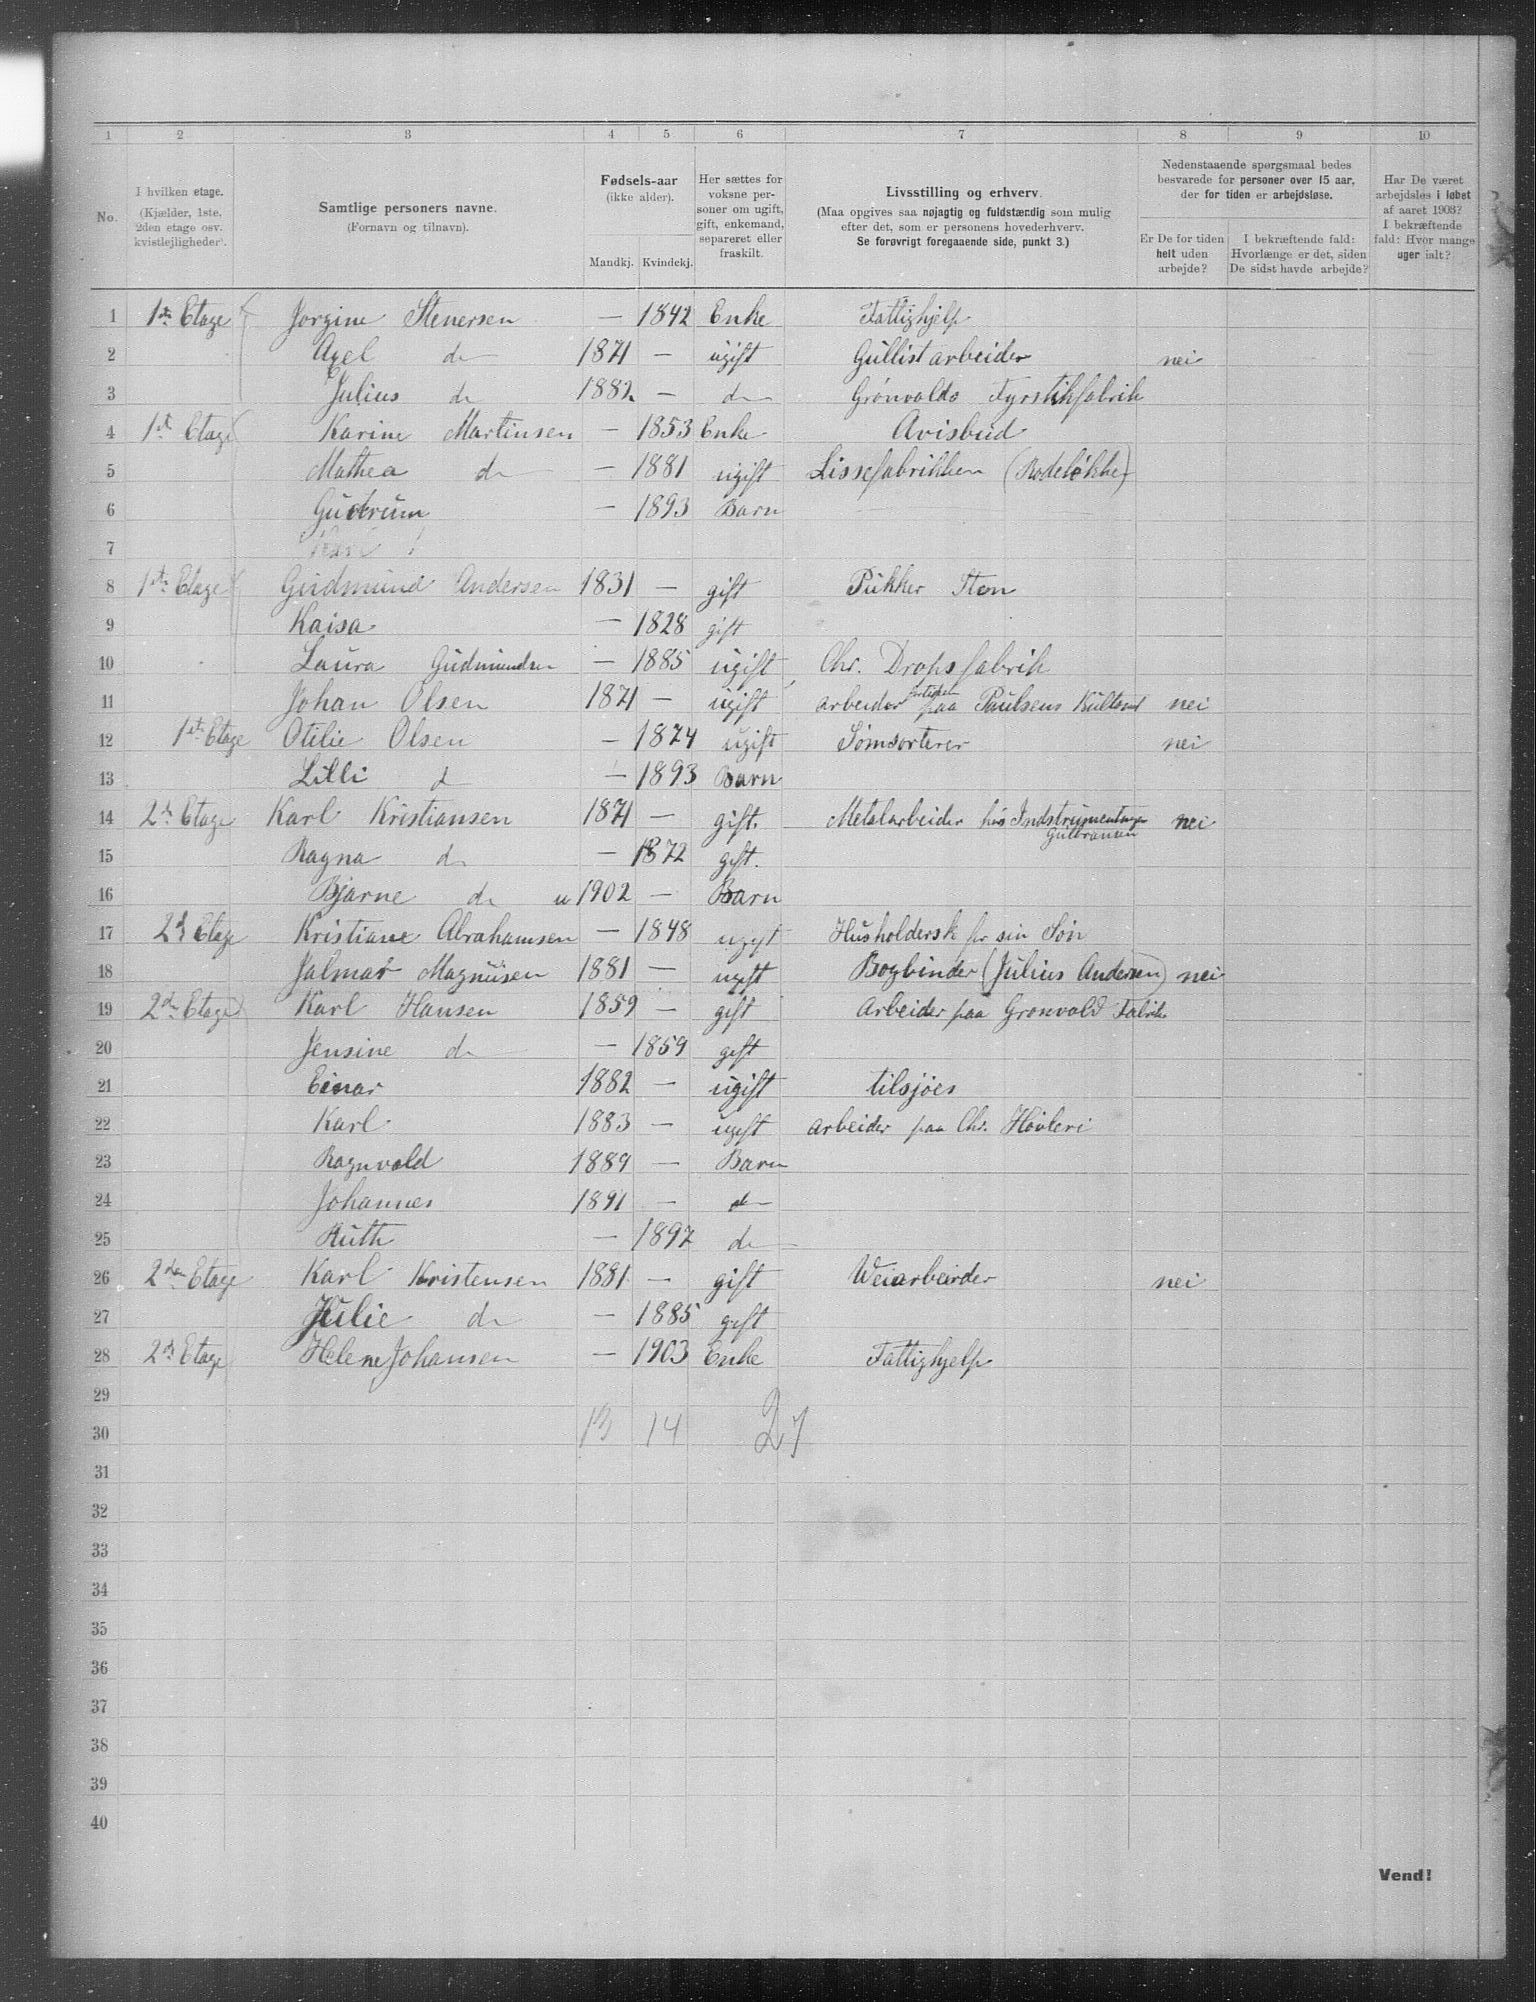 1 2 3 4 5 6 7 8 9 10
No.
I hvilken etage.
(Kjælder, 1ste,
2den etage osv.
kvistlejligheder).
Samtlige personers navne.
(Fornavn og tilnavn).
Fødsels-aar
(ikke alder).
Mandkj. Kvindekj.
Her sættes for
voksne per-
soner om ugift,
gift, enkemand,
separeret eller
fraskilt.
Livsstilling og erhverv.
(Maa opgives saa nøjagtig og fuldstændig som mulig
efter det, som er personens hovederhverv.
Se forøvrigt foregaaende side, punkt 3.)
Nedenstaaende spørgsmaal bedes
besvarede for personer over 15 aar,
der for tiden er arbejdsløse.
Er De for tiden
helt uden
arbejde?
I bekræftende fald:
Hvorlænge er det, siden
De sidst havde arbejde?
Har De været
arbejdsløs i løbet
af aaret 1903?
I bekræftende
fald: Hvor mange
uger ialt?
1 1ste Etage Jorgine Stenersen — 1842 Enke Fattighjelp
2 Axel do 1871 — ugift Gullistarbeider nei
3 Julius do 1882 — do Grønvolds Fyrstikfabrik
4 1st Etage Karine Martinsen — 1853 Enke Avisbud
5 Mathea do — 1881 ugift Lissefabrikken (Rodeløkken)
6 Gudrum — 1893 Barn
7
8 1ste Etage Gudmund Andersen 1831 — gift Pukker Sten
9 Kaisa — 1828 gift
10 Laura Gudmundsen — 1885 ugift Chr. Dropsfabrik
11 Johan Olsen 1871 — ugift arbeider fortiden paa Paulsens Kultomt nei
12 1ste Etage Otilie Olsen — 1874 ugift Sømsorterer nei
13 Lilli d — 1893 Barn
14 2d Etage Karl Kristiansen 1871 — gift. Metalarbeider hos Indstrumentmager nei
Gulbransen
15 Ragna do — 1872 gift.
16 Bjarne do u 1902 — Barn
17 2d Etage Kristiane Abrahamsen — 1848 ugift Husholdersk for sin Søn
18 Jalmar Magnusen 1881 — ugift Bogbinder (Julius Andersen) nei
19 2d Etage Karl Hansen 1859 — gift Arbeider paa Gronvold Fabrik
20 Jensine do — 1859 gift
21 Einar 1882 — ugift tilsjøes
22 Karl 1883 — ugift arbeider paa Chr. Høvleri
23 Ragnvald 1889 — Barn
24 Johannes 1891 — do
25 Ruth — 1897 do
26 2den Etage Karl Kristensen 1881 — gift Weiarbeirder nei
27 Julie do — 1885 gift
28 2d Etage Helene Johansen — 1903 Enke Fattighjelp
29
30 13 14 27
31
32
33
34
35
36
37
38
39
40
Vend!